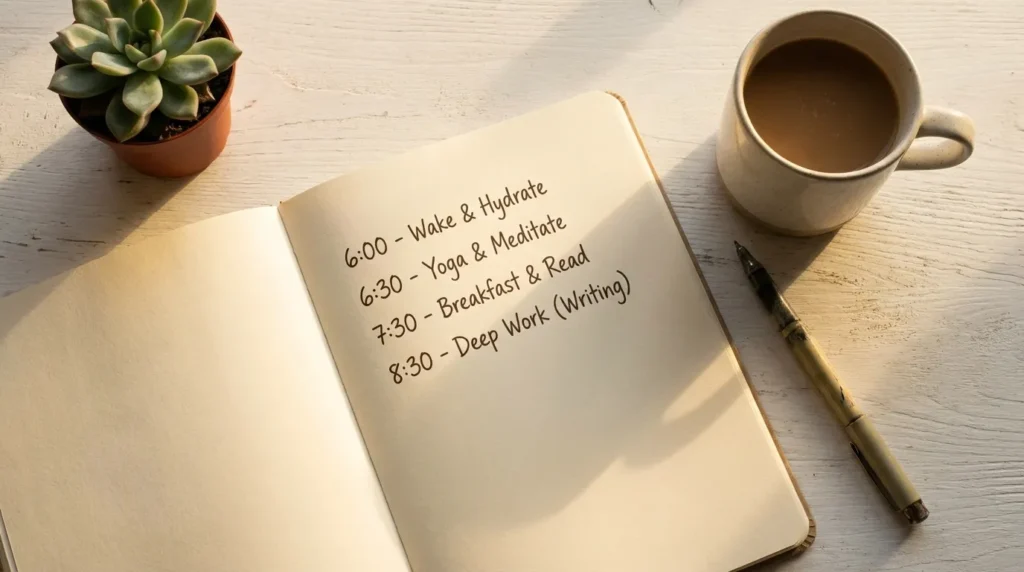 6:00 - Wake & Hydrate
6:30 - Yoga & Meditate
7:30 - Breakfast & Read
8:30 - Deep Work (Writing)